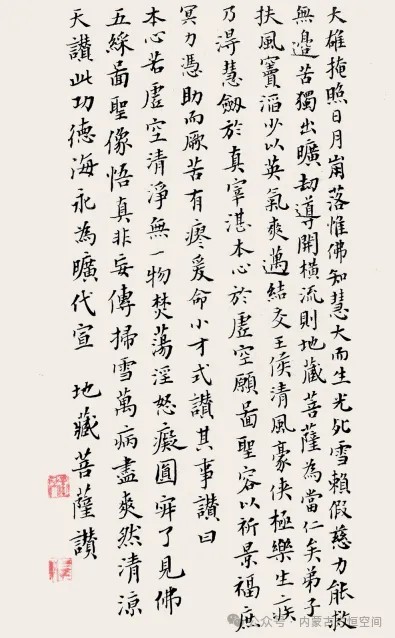 大雄掩照日月崩落惟佛知慧大而生光死雪賴假慈力能救
無邊苦獨出曠劫導開橫流則地藏菩薩為當仁矣弟子
扶風竇滔少以英氣爽邁結交王侯清風豪俠極樂生疾
乃得慧劔於真宰湛本心於虛空願啚聖容以祈景福庶
冥力憑助而厥苦有瘳爰命小才式讚其事讚曰
本心若虛空清淨無一物焚蕩淫怒癡圓寂了見佛
五綵啚聖像悟真非妄傳掃雪萬病盡爽然清涼
天讚此功德海永為曠代宣 地藏菩薩讚
公众号 · 内蒙古恒空间